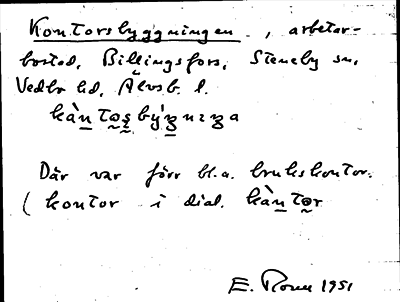 Kontorsbyggningen, arbetar-
bostad, Billingsfors, Steneby sn,
Vedbo hd, Älvsb. l.
Där var förr bl.a. brukskontor.
( kontor i dial.
E. 1951